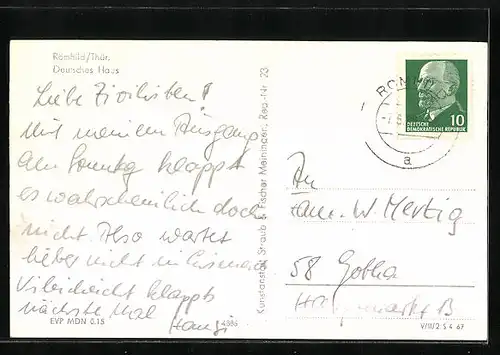 Römhild/Thür.
Deutsches Haus
Liebe Zivilisten!
Mit meinem Ausgang
am Sonntag klappt
es wahrscheinlich doch
nicht. Also wartet
lieber nicht in Eisenach
Vielleicht klappts
nächste Mal
Hansi
EVP MDN 0.15
4386
Kunstanstalt Straub & Fischer Meiningen, Reg.-Nr. 23
RÖMHILD
a
10
DEUTSCHE
DEMOKRATISCHE REPUBLIK
An
Fam. W. Mertig
58 Gotha
V/11/2 S 4 67